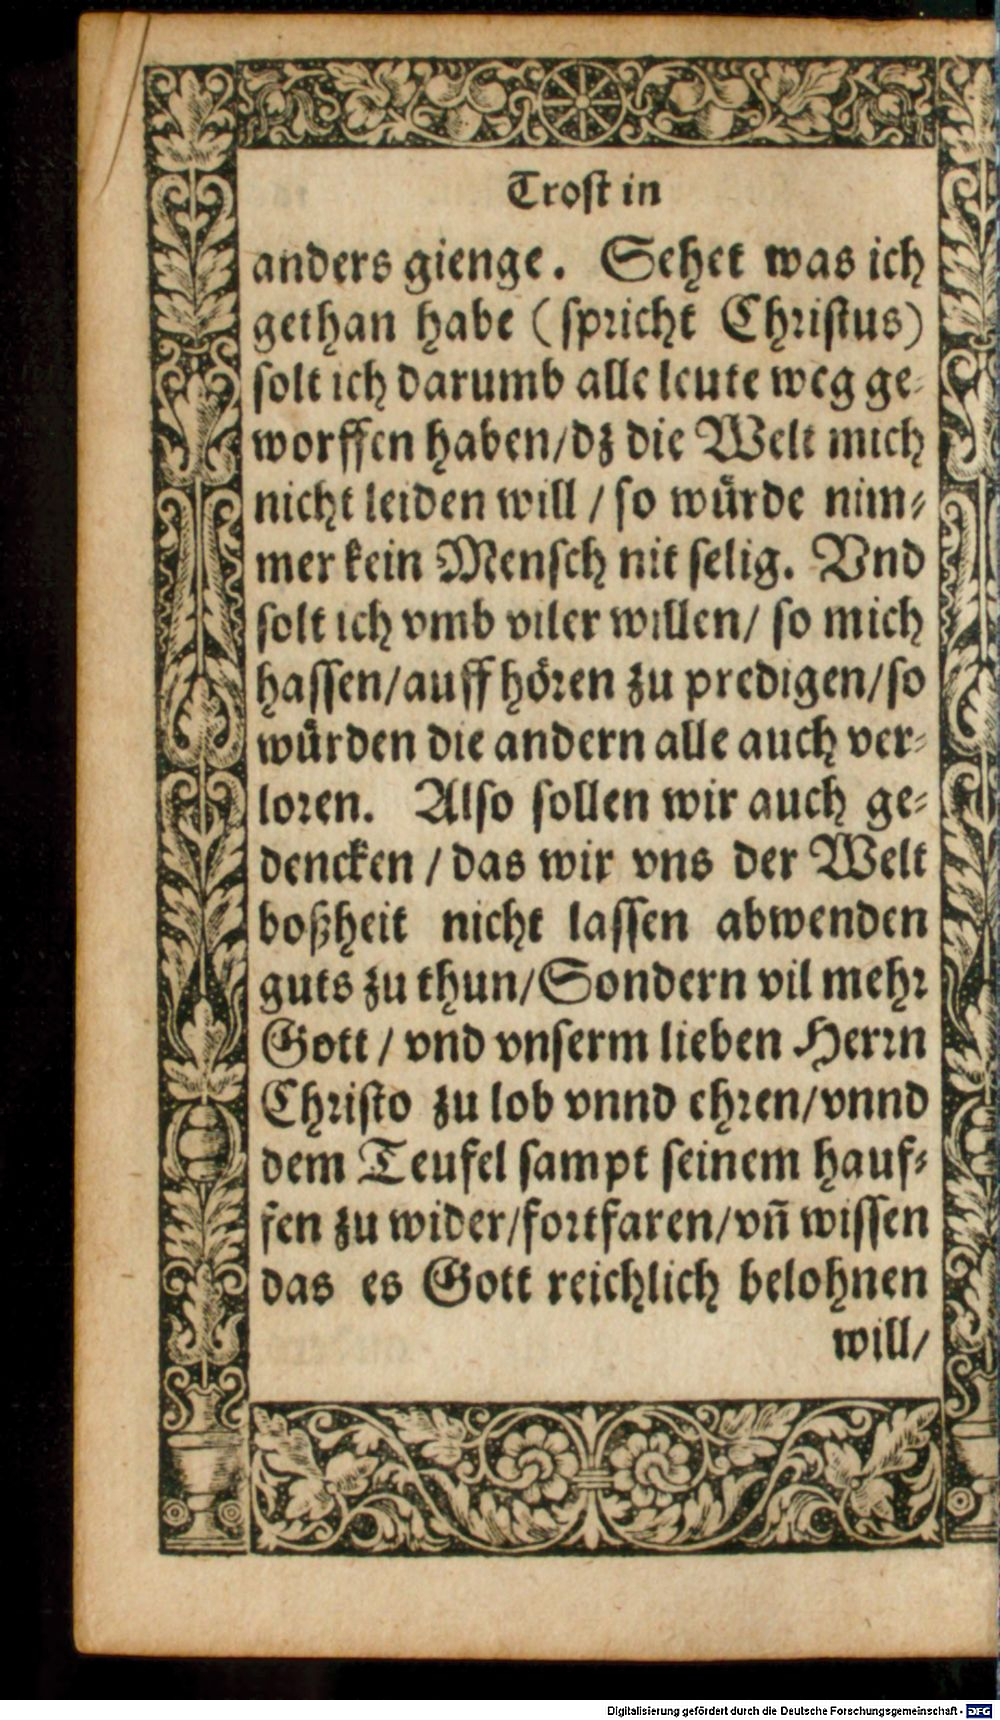 Trost in
anders gienge. Sehet was ich
gethan habe (spricht Christus)
solt ich darumb alle leute weg ge-
worffen haben/dz die Welt mich
nicht leiden will / so würde nim-
mer kein Mensch nit selig. Vnd
solt ich vmb viler willen/ so mich
hassen/auff hören zu predigen/so
würden die andern alle auch ver-
loren. Also sollen wir auch ge-
dencken / das wir vns der Welt
boßheit nicht lassen abwenden
guts zu thun/Sondern vil mehr
Gott / vnd vnserm lieben Herrn
Christo zu lob vnnd ehren/vnnd
dem Teufel sampt seinem hauf-
fen zu wider/fortfaren/vn̄ wissen
das es Gott reichlich belohnen
will/
Digitalisierung gefördert durch die Deutsche Forschungsgemeinschaft - DFG